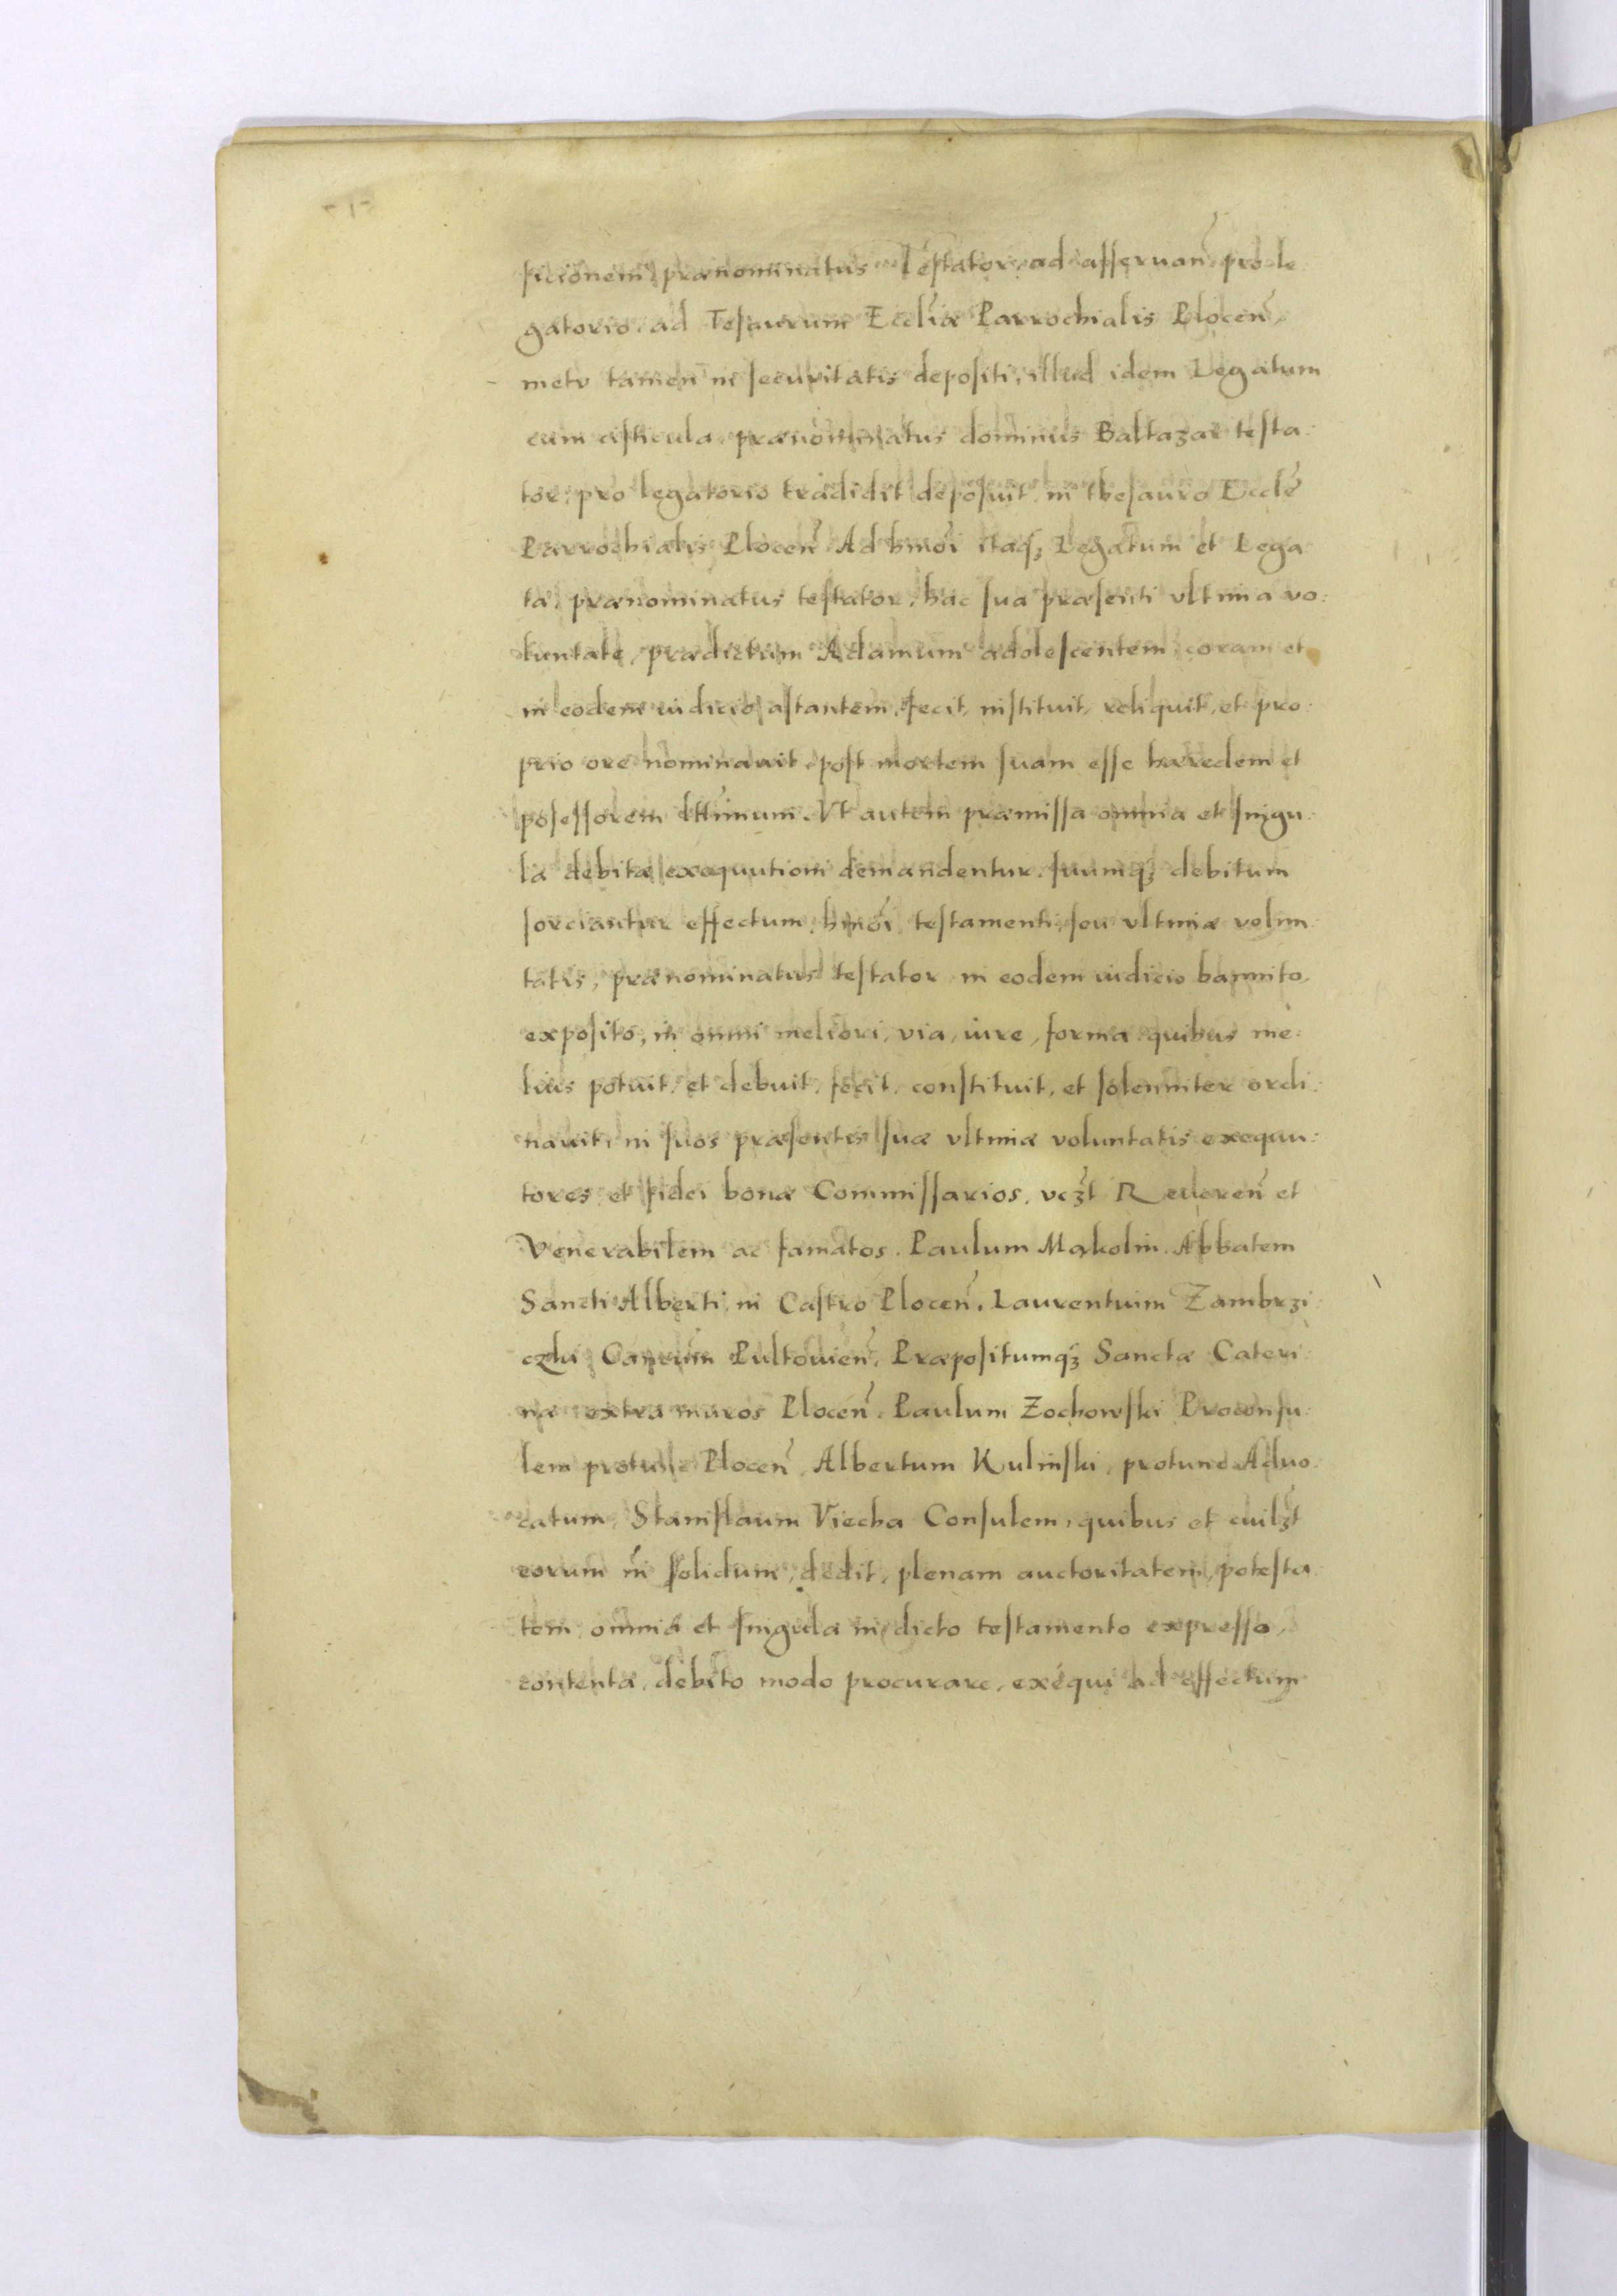 ficionem prænominatus Testator, ad asseruan̄ pro le
gatorio, ad Tesaurum Eccl̄iæ Parrochialis Plocen̄,
metu tamen in securitatis depositi, illud idem Legatum
cum cisticula prænominatus dominus Baltazar testa:
tor, pro legatorio tradidit deposuit, in thesauro Eccle᷒
Parrochialis Plocen̄ Ad hmōi itaqꝫ Legatum et Lega
ta, prænominatus testator, hac sua præsenti vltima vo:
luntate, prædictum Adamum adolescentem coram et
in eodem iudicio astantem, fecit, instituit, reliquit, et pro:
prio ore nominauit, post mortem suam esse hæredem et
posessorem lttīmum. Vt autem præmissa omnia et singu:
la debitæ exequutioni demandentur, suumqꝫ debitum
sorciantur effectum, hmōi testamenti, seu vltimæ volun:
tatis, prænominatus testator in eodem iudicio bannito,
exposito, in omni meliori, via, iure, forma quibus me:
lius potuit, et debuit, fecit, constituit, et solenniter ordi:
nauit, in suos præsentis suæ vltimæ voluntatis exequu:
tores, et fidei bonæ Commissarios, vczt Reueren̄ et
Venerabilem ac famatos, Paulum Makolin Abbatem
Sancti Alberti, in Castro Plocen̄, Laurentium Zambrzi:
czki Canc̄um Pultouien̄, Præpositumqꝫ Sanctæ Cateri:
næ extra muros Plocen̄, Paulum Zochowski Proconsu:
lem protunc Plocen̄, Albertum Kulinski, protunc Aduo:
catum, Stanislaum Viecha Consulem, quibus et cuilꝫt
eorum in solidum, dedit, plenam auctoritatem, potesta
tem, omnia et singula in dicto testamento expressa,
contenta, debito modo procurare, exequi ad effectum